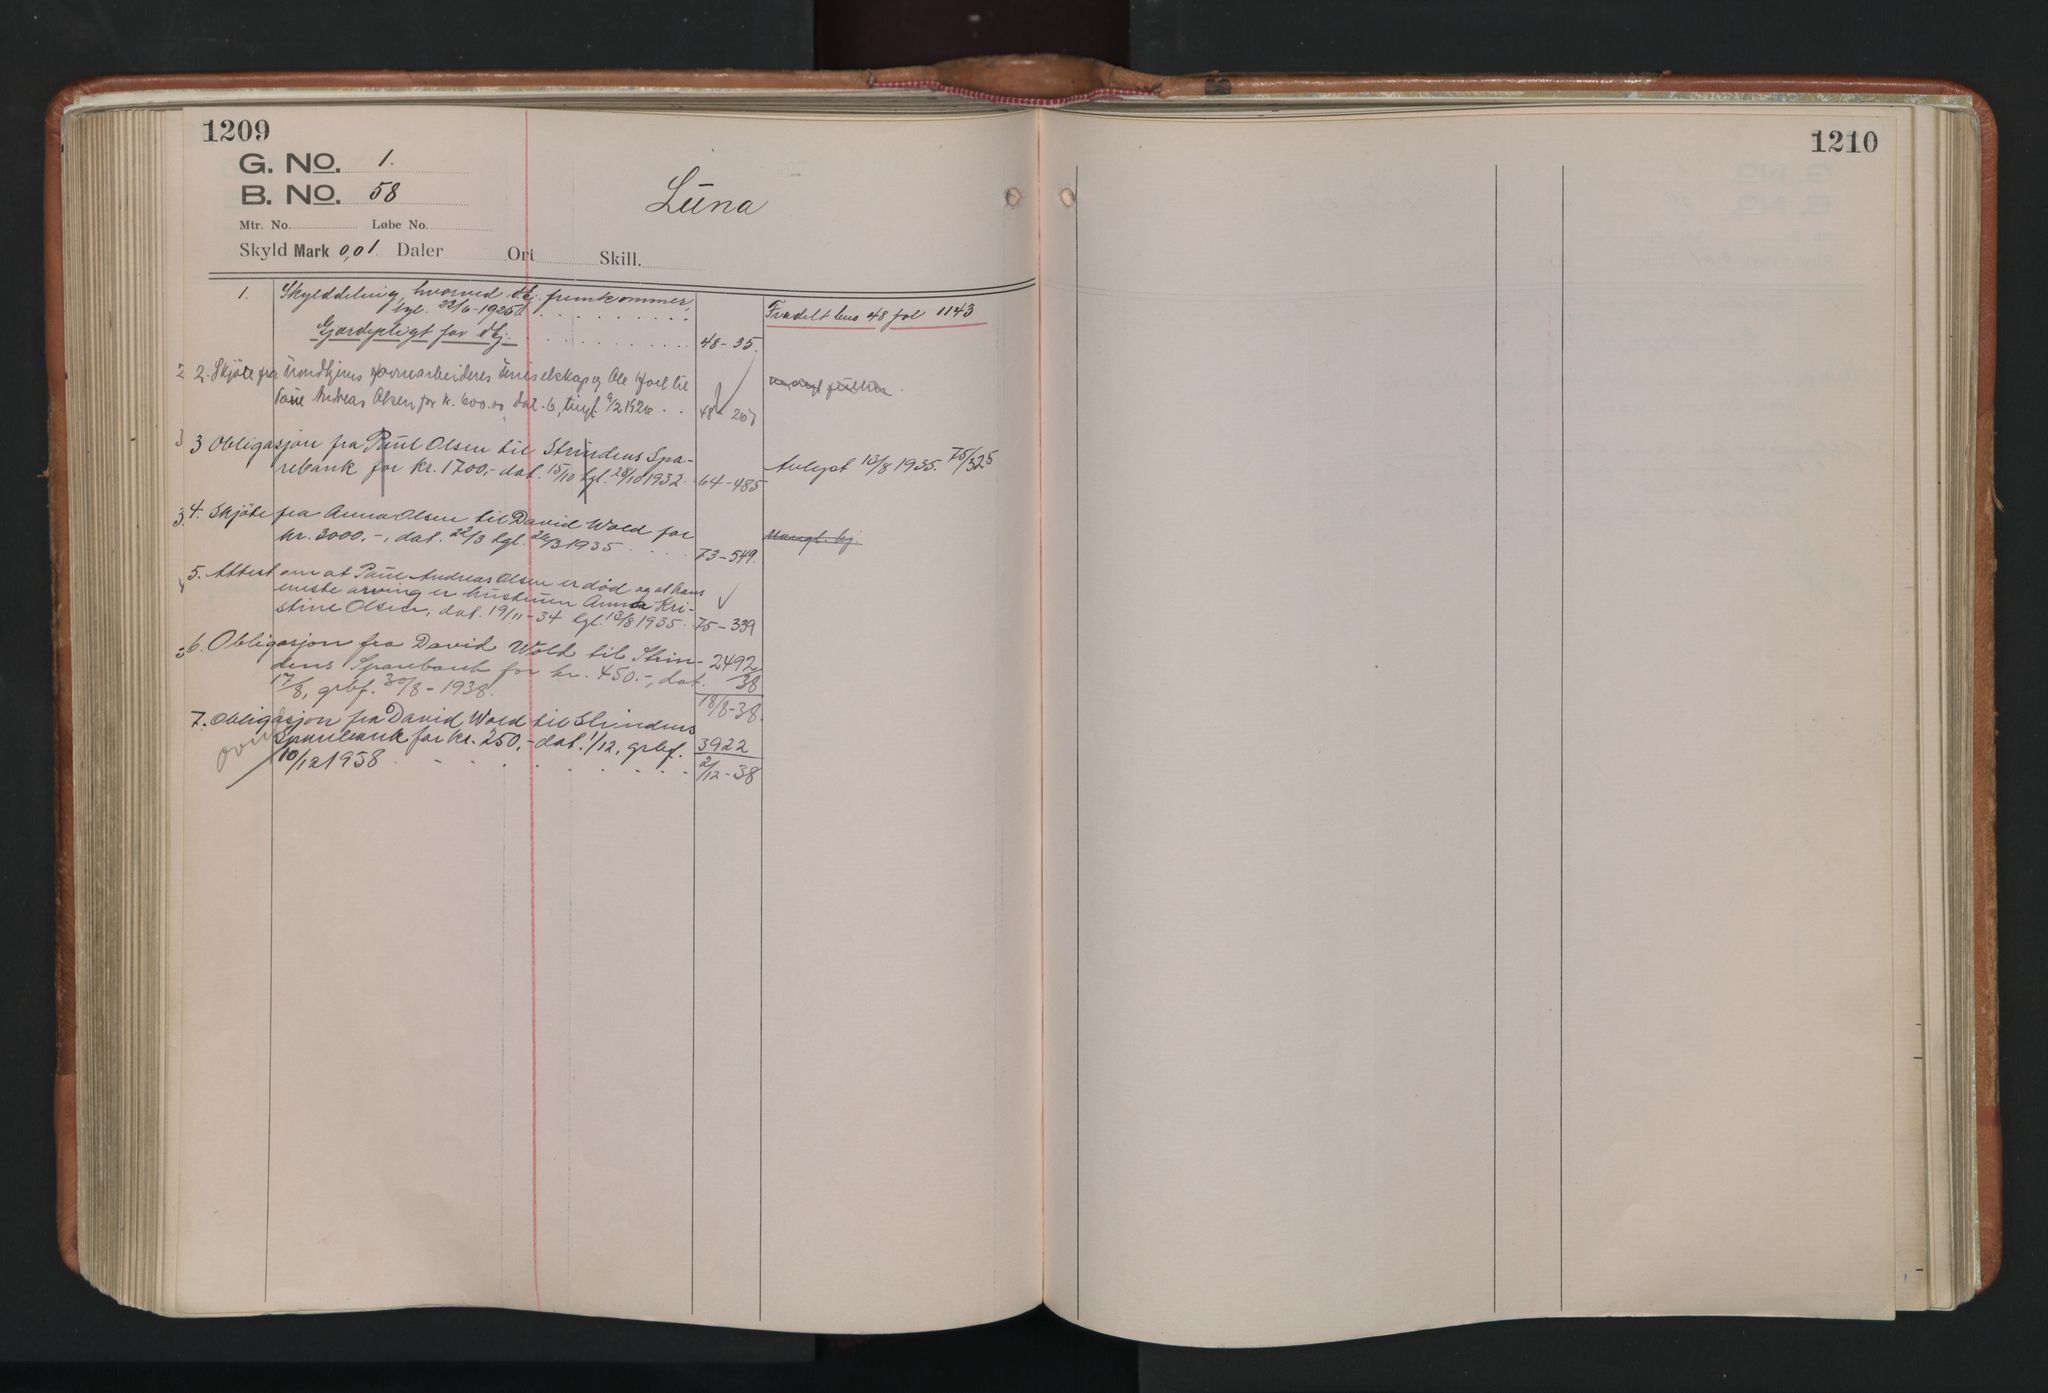 1209
G. No. 1.
B. No. 58
Lūna
Mtr. No. Løbe No.
Skyld Mark 0,01. Daler Ort Skill.
1. Skylddeling, hvorved d.bj. fremkommer,
tgl. 22/6-1925.
Gjærdepligt for d.bj. 48-35.
Fradelt bno 48 fol 1143
2 2. Skjøte fra Trondhjems jernarbeideres og Ole Hoel til
Paūl Andreas Olsen for kr. 600.00, dat. 6, tingl. 9/2 1926 48-267
3 3 Obligasjon fra Paūl Olsen til Strindens Spa-
rebank for kr. 1700,- dat. 15/10 tgl. 28/10 1932. 64-485
Avlyst 13/8 1935. 75/325
3. 4. Skjøte fra Anna Olsen til David Wold for
kr. 3000.-, dat. 22/3 tgl. 26/3 1935 73-549.
Mangl. hj.
4 5. Attest om at Paūl Andreas Olsen er død og at hans
eneste arving er hūstrūen Anna Kri-
stine Olsen, dat. 19/11-34 tgl. 13/8 1935. 75-339
5 6. Obligasjon fra David Wold til Strin- 2492
dens Sparebank for kr. 450.-, dat. 38
17/8, grbf. 30/8-1938. 18/8-38.
7. Obligasjon fra David Wold til Strindens
Sparebank for kr. 250,- dat. 1/12, grbf. 3922
10/12 1938 2/12-38
1210